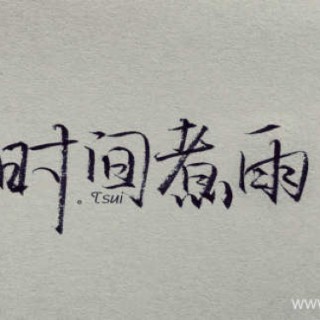 时间煮雨
。Tsui
www.